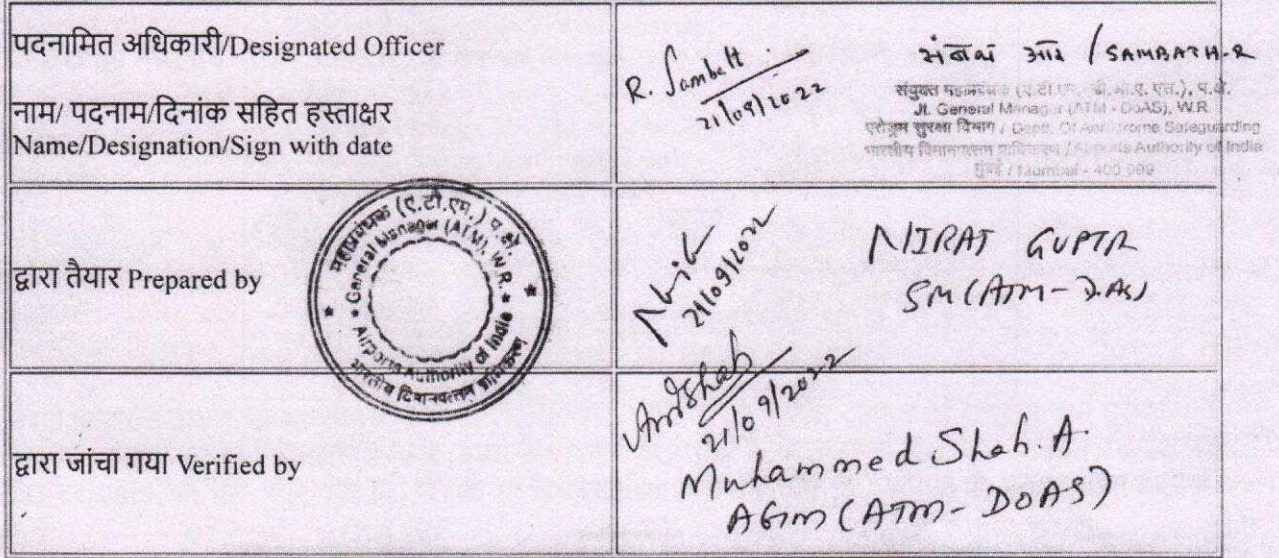 पदनामित अधिकारी/Designated Officer
नाम/ पदनाम/दिनांक सहित हस्ताक्षर
Name/Designation/Sign with date
R. Sambath
21/09/2022
संबथ आर / SAMBATH-R
संयुक्त महाप्रबंधक (ए.टी.एम. - डी.ओ.ए. एस.), प.क्षे.
Jt. General Manager (ATM - DoAS), W.R.
एरोड्रम सुरक्षा विभाग / Deptt. Of Aerodrome Safeguarding
भारतीय विमानपत्तन प्राधिकरण / Airports Authority of India
मुंबई / Mumbai - 400 099
द्वारा तैयार Prepared by
महाप्रबंधक (ए.टी.एम.) प.क्षे.
General Manager (ATM), W.R.
Airports Authority of India
भारतीय विमानपत्तन प्राधिकरण
21/09/2022
NIRAT GUPTA
SM(ATM-DoAS)
द्वारा जांचा गया Verified by
21/09/2022
Muhammed Shah. A.
AGM (ATM- DOAS)